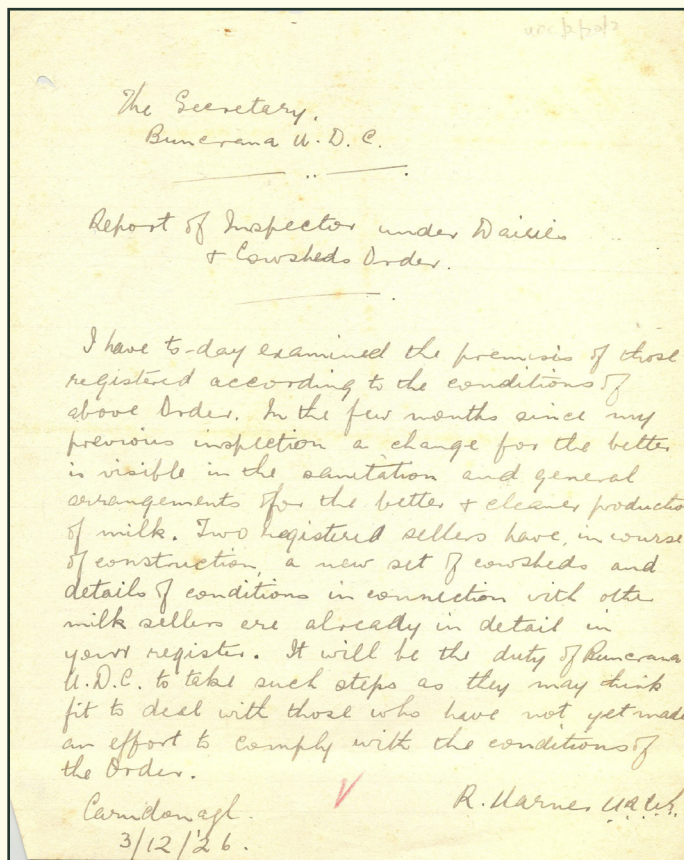 The Secretary,
Buncrana U.D.C.
Report of Inspector under Dairies
& Cowsheds Order.
I have to-day examined the premises of those
registered according to the conditions of
above Order. In the few months since my
previous inspection a change for the better
is visible in the sanitation and general
arrangements for the better & cleaner productio
of milk. Two registered sellers have, in course
of construction, a new set of cowsheds and
details of conditions in connection with othe
milk sellers are already in detail in
your register. It will be the duty of Buncrana
U.D.C. to take such steps as they may think
fit to deal with those who have not yet made
an effort to comply with the conditions of
the Order.
Carndonagh.
R.
3/12/26.